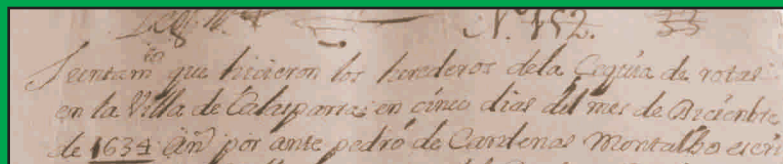 Leg. N. 4 N. 152.
Juntam.to que hicieron los herederos dela Cequia de rotas
en la Villa de Calasparra en cinco dias del mes de Diciembre
de 1634 an̄ por ante pedro de Cardenas Montalbo escri